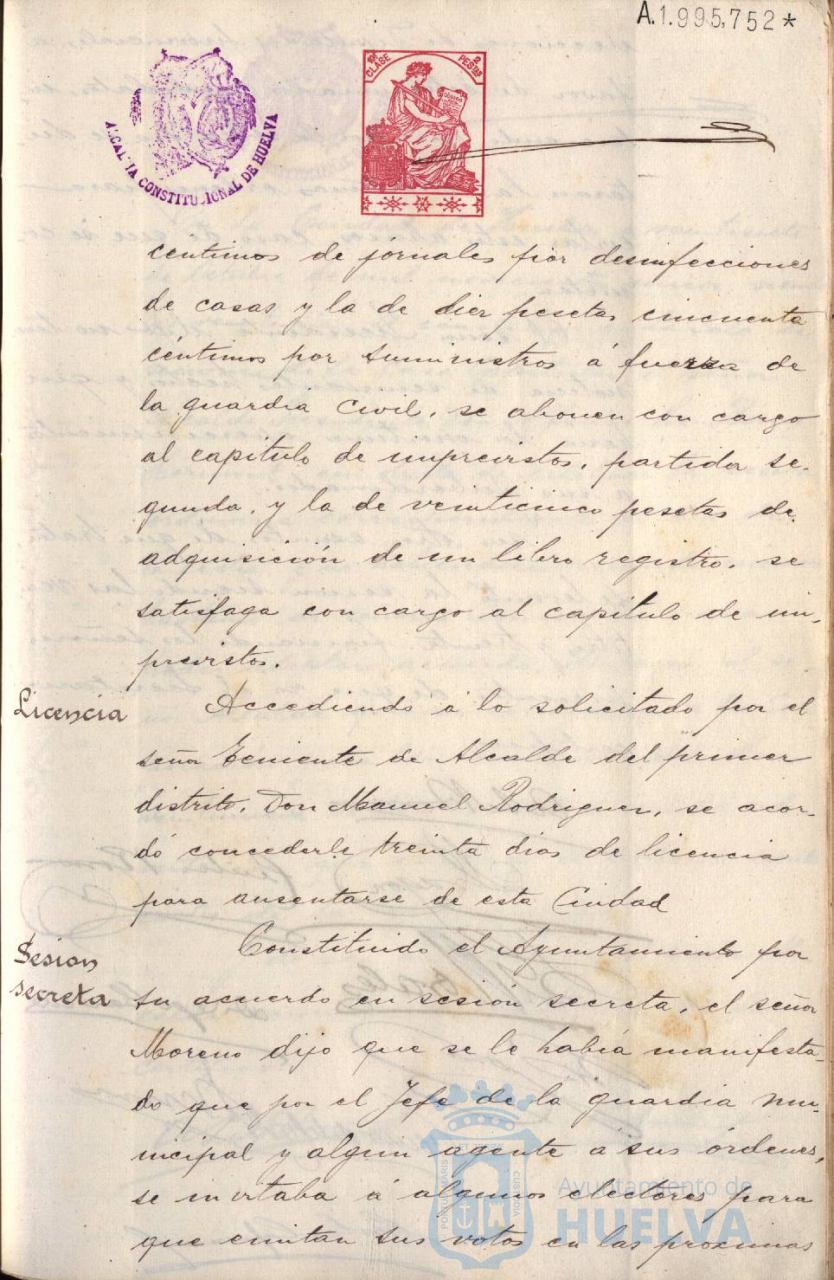 A.1.995,752*
10ª CLASE 2 PESETAS
ALCALDIA CONSTITUCIONAL DE HUELVA
centimos de jornales por desinfecciones
de casas y la de diez pesetas cincuenta
céntimos por suministros á fuerza de
la guardia Civil, se abonen con cargo
al capítulo de imprevistos, partida se-
gunda, y la de veinticinco pesetas de
adquisición de un libro registro, se
satisfaga con cargo al capítulo de im-
previstos.
Licencia
Accediendo á lo solicitado por el
señor Teniente de Alcalde del primer
distrito, Don Manuel Rodriguez, se acor-
dó concederle treinta dias de licencia
para ausentarse de esta Ciudad
Sesion
secreta
Constituido el Ayuntamiento por
su acuerdo en sesión secreta, el señor
Moreno dijo que se le había manifesta-
do que por el Jefe de la guardia mu-
nicipal y algun agente á sus órdenes,
se invitaba á algunos electores para
que emitan sus votos en las proximas
Ayuntamiento de
HUELVA